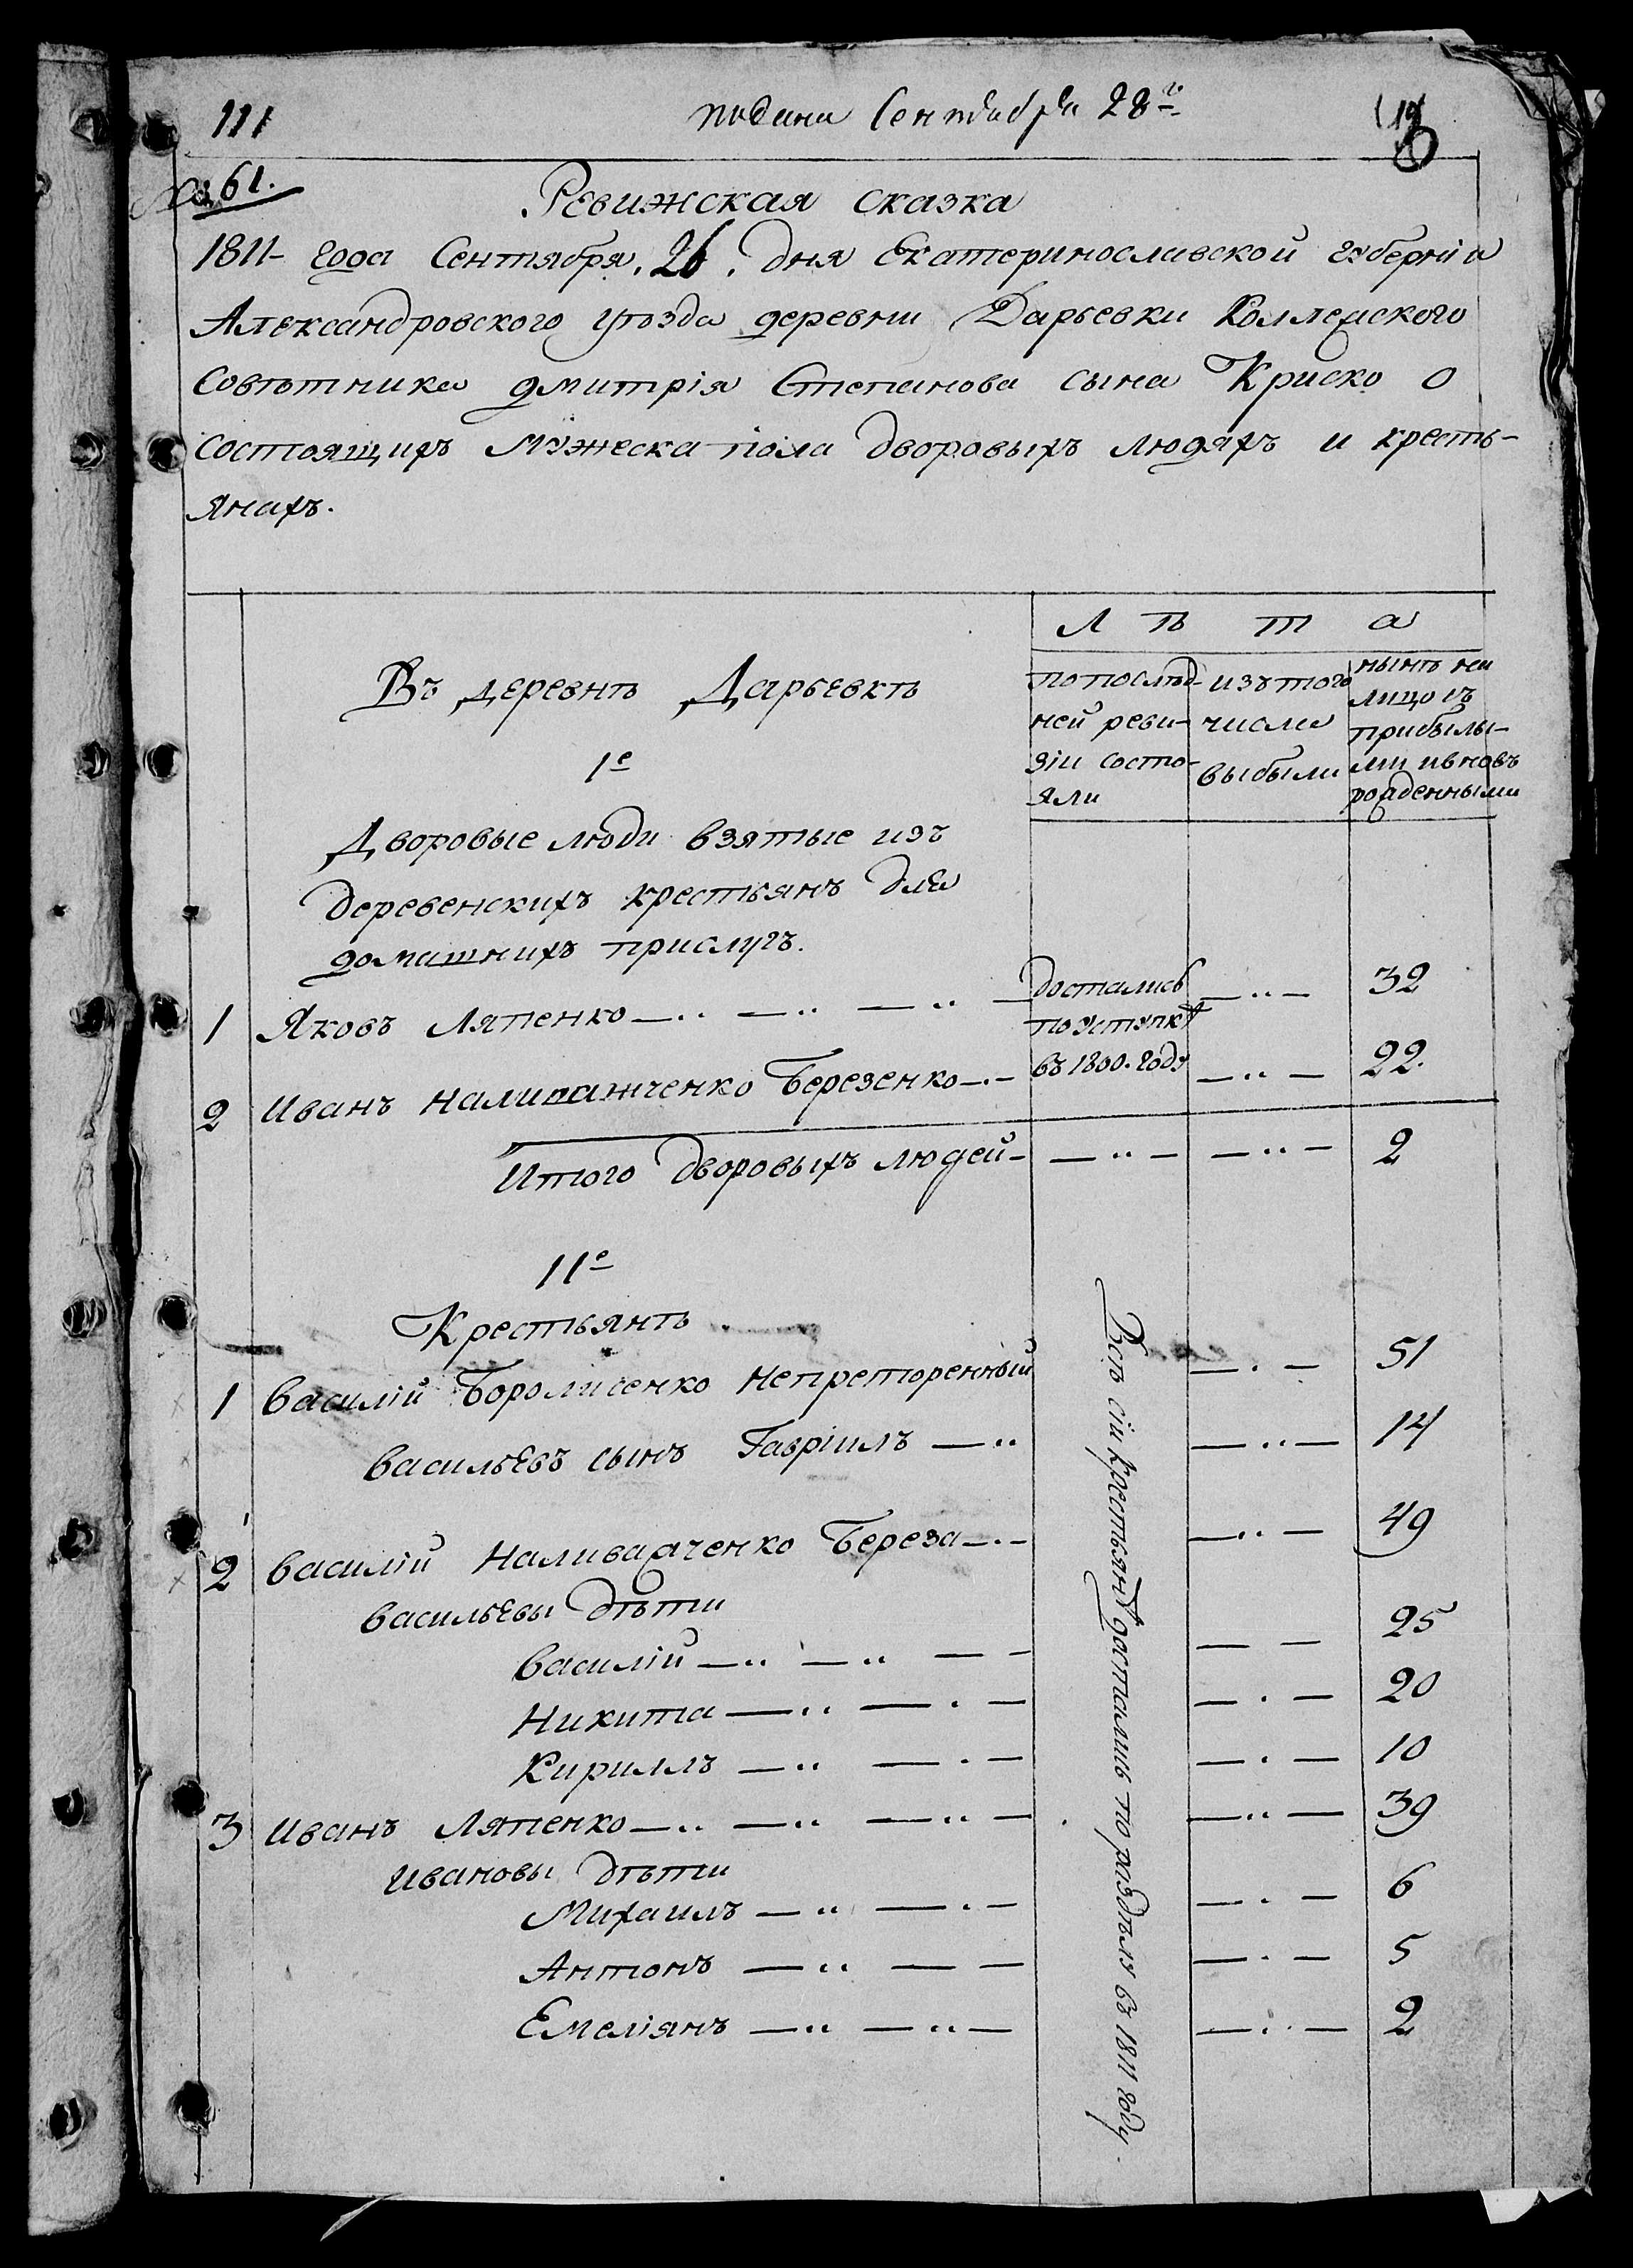 111
подана Сентября 28го
№ 61.
Ревижская сказка
1811 года Сентября 26 дня Екатеринославской губерніи
Александровского уѣзда деревни Дарьевки Коллежского
Совѣтника Дмитрія Степанова сына Криско о
состоящихъ мужеска пола дворовыхъ людяхъ и кресть-
янахъ.
Лѣта
Въ деревнѣ Дарьевкѣ
по послѣд-
ней реви-
зіи состо-
яли
изъ того
числа
выбыли
нынѣ на
лицо съ
прибылы-
ми и вновь
рожденными
1е
Дворовые люди взятые изъ
деревенскихъ крестьянъ для
домашнихъ прислугъ.
1 Яковъ Ляпенко — достались — 32
по уступкѣ
2 Иванъ Березенко — въ 1800. году — 22.
Итого дворовыхъ людей — — 2
11е
Крестьянѣ
1 Василій — 51
Васильевъ сынъ Гавріилъ — 14
2 Василій Наливайченко Береза — 49
Васильевы дѣти
Василій — 25
Никита — 20
Кириллъ — 10
3 Иванъ Ляпенко — 39
Ивановы дѣти
Михаилъ — 6
Антонъ — 5
Емеліянъ — 2
Всѣ сіи крестьянѣ достались по раздѣлу въ 1811 году.